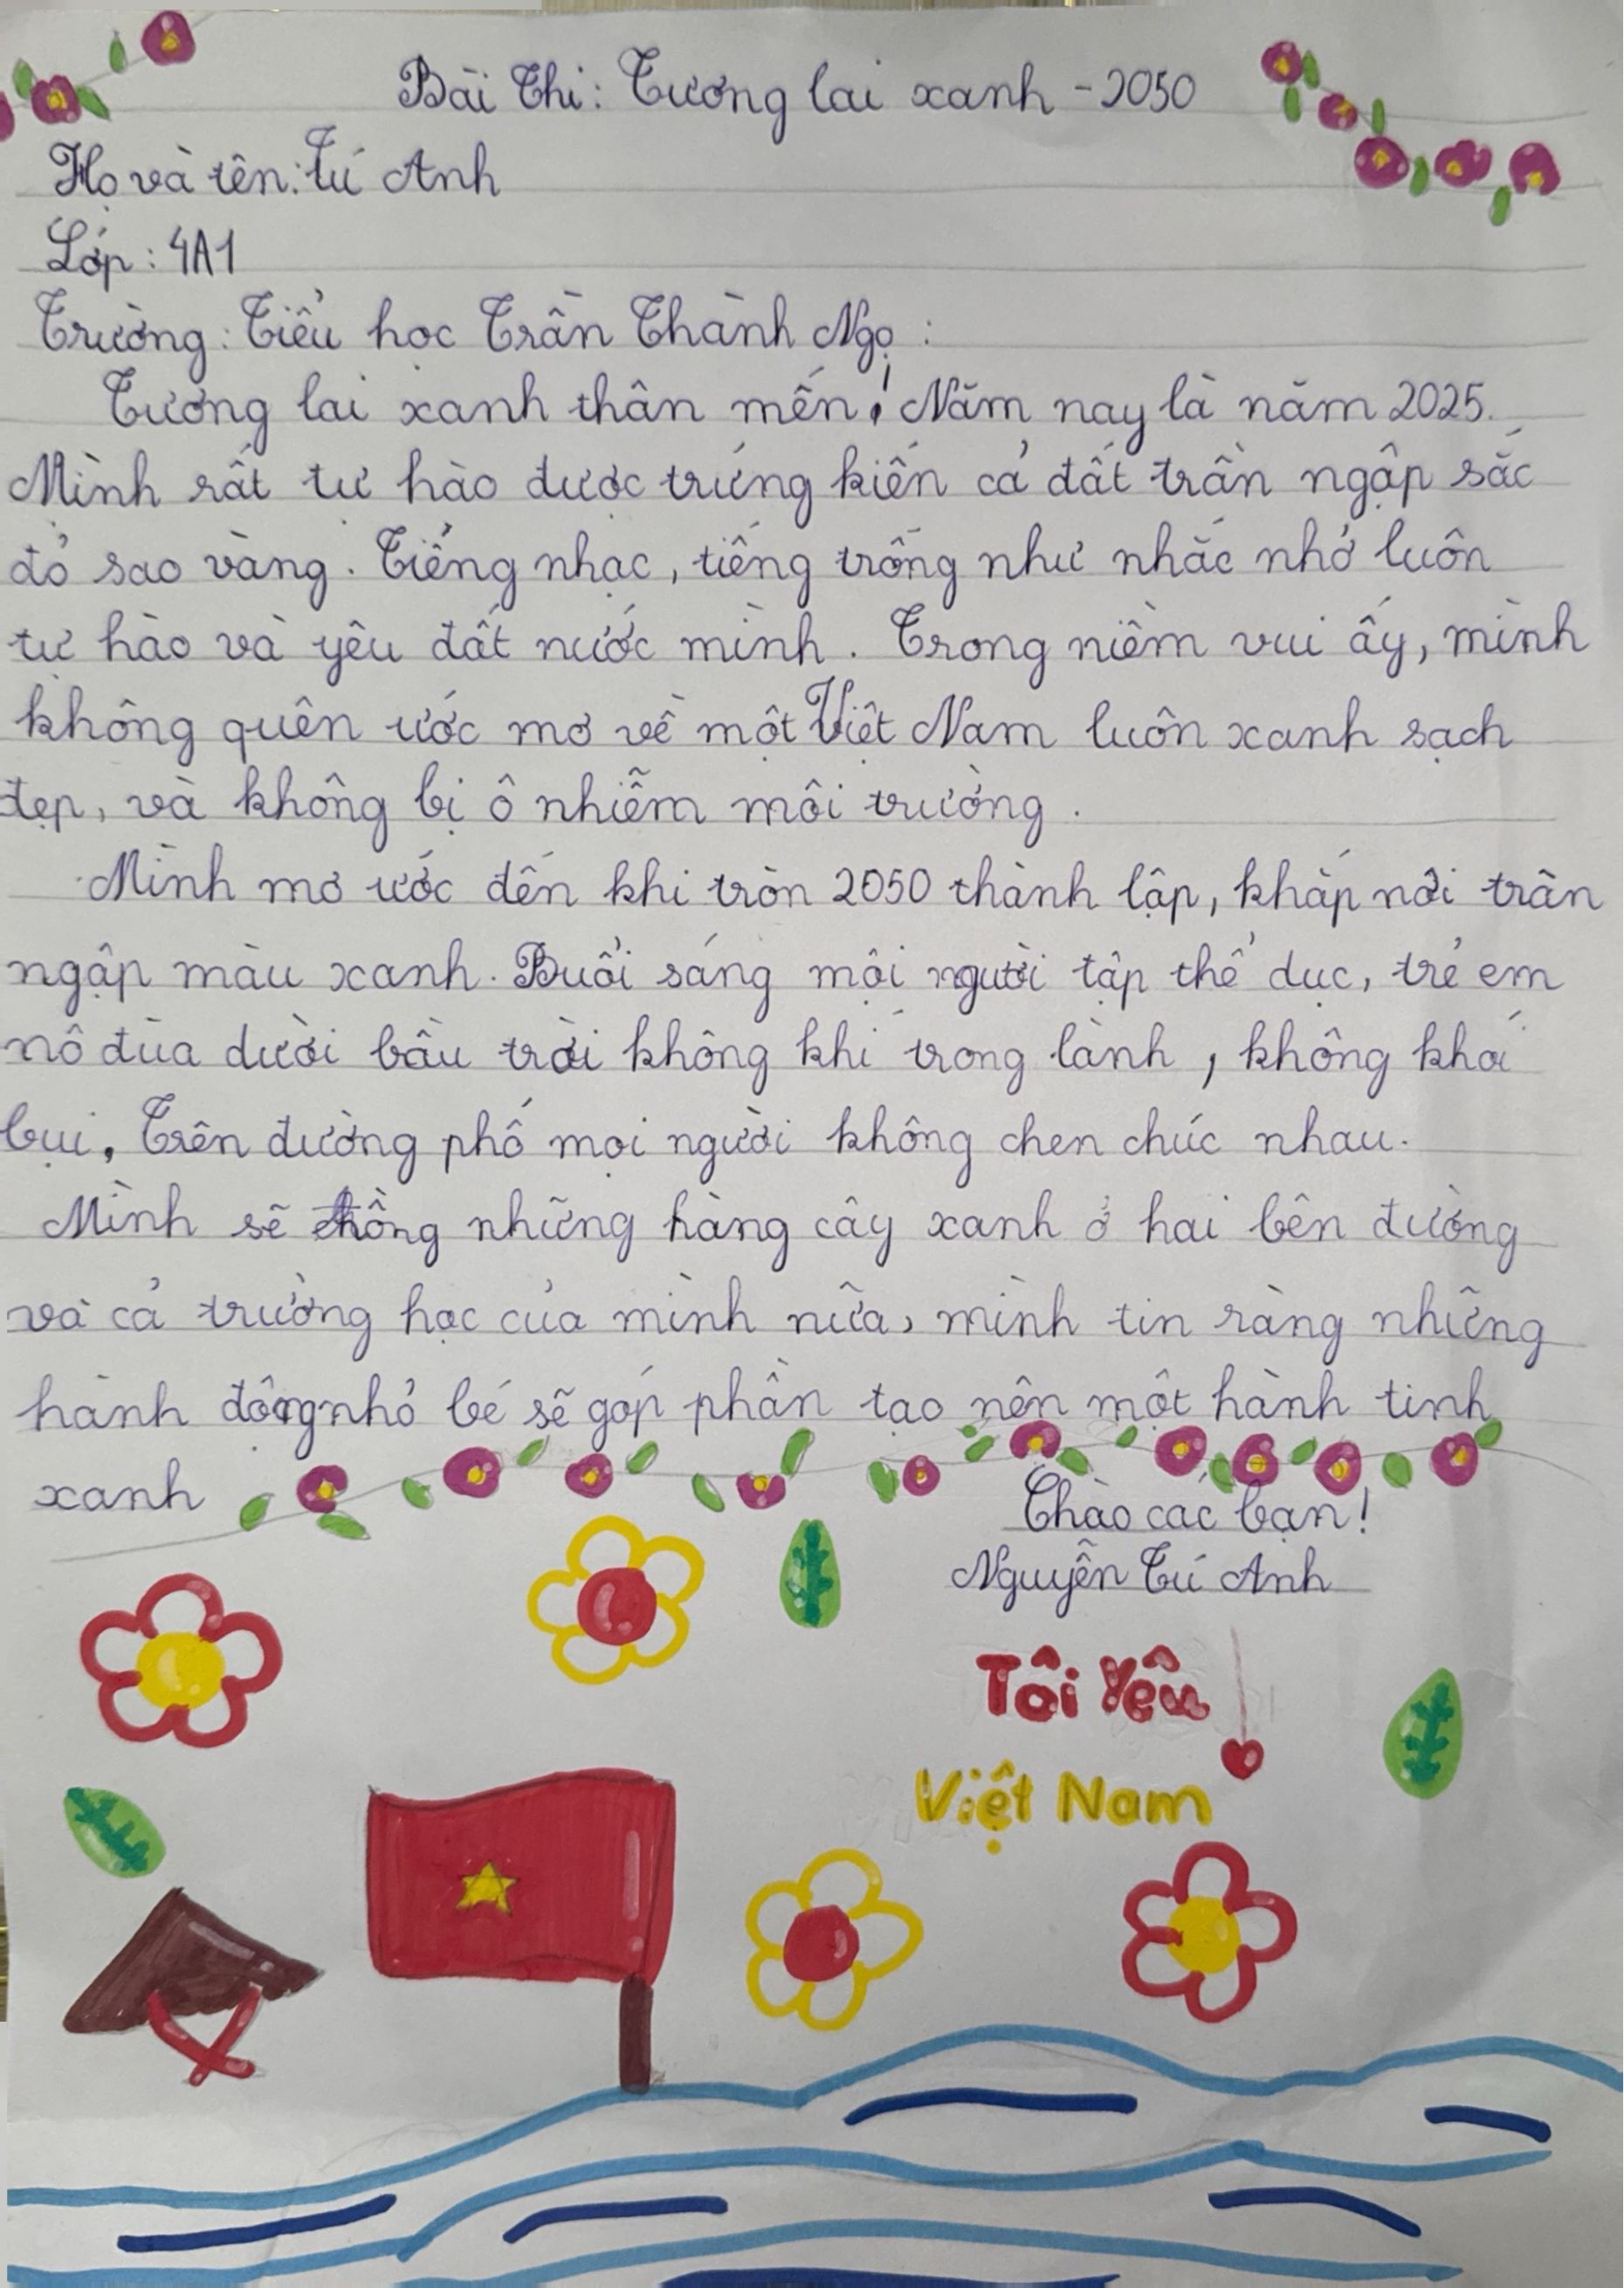 Bài Thi: Tương lai xanh - 2050
Họ và tên: Tú Anh
Lớp: 4A1
Trường: Tiểu học Trần Thành Ngọ:
Tương lai xanh thân mến! Năm nay là năm 2025.
Mình rất tự hào được trứng kiến cả đất trần ngập sắc
đỏ sao vàng. Tiếng nhạc, tiếng trống như nhắc nhở luôn
tự hào và yêu đất nước mình. Trong niềm vui ấy, mình
không quên ước mơ về một Việt Nam luôn xanh sạch
đẹp, và không bị ô nhiễm môi trường.
Mình mơ ước đến khi tròn 2050 thành lập, khắp nơi trần
ngập màu xanh. Buổi sáng mội người tập thể dục, trẻ em
nô đùa dưới bầu trời không khí trong lành, không khói
bụi, Trên đường phố mọi người không chen chúc nhau.
Mình sẽ trồng những hàng cây xanh ở hai bên đường
và cả trường học của mình nữa, mình tin ràng những
hành động nhỏ bé sẽ góp phần tạo nên một hành tinh
xanh
Chào các bạn!
Nguyễn Tú Anh
Tôi Yêu
Việt Nam